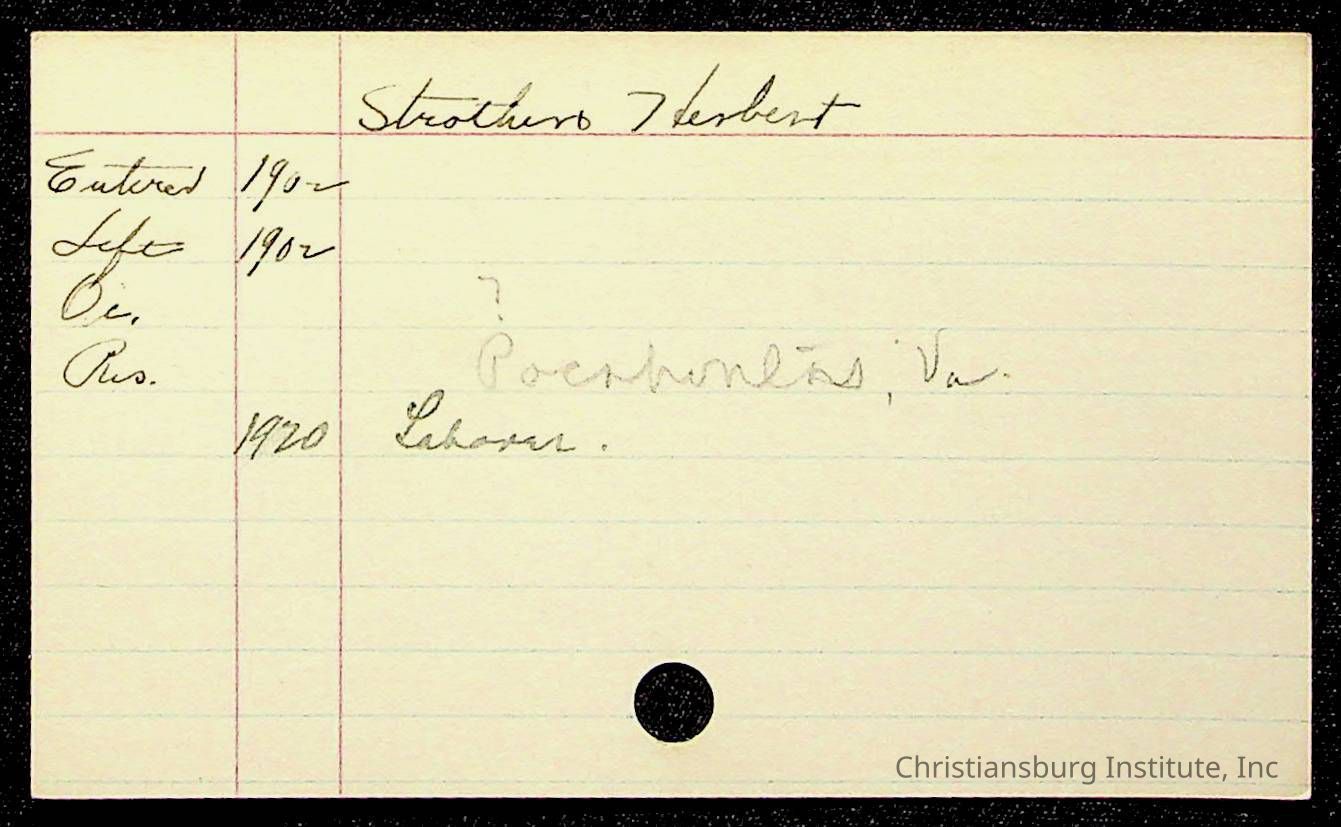 Strothers Herbert
Entered 1902
Left 1902
Oc. ?
Res. Pocahontas, Va.
1920 Laborer.
Christiansburg Institute, Inc